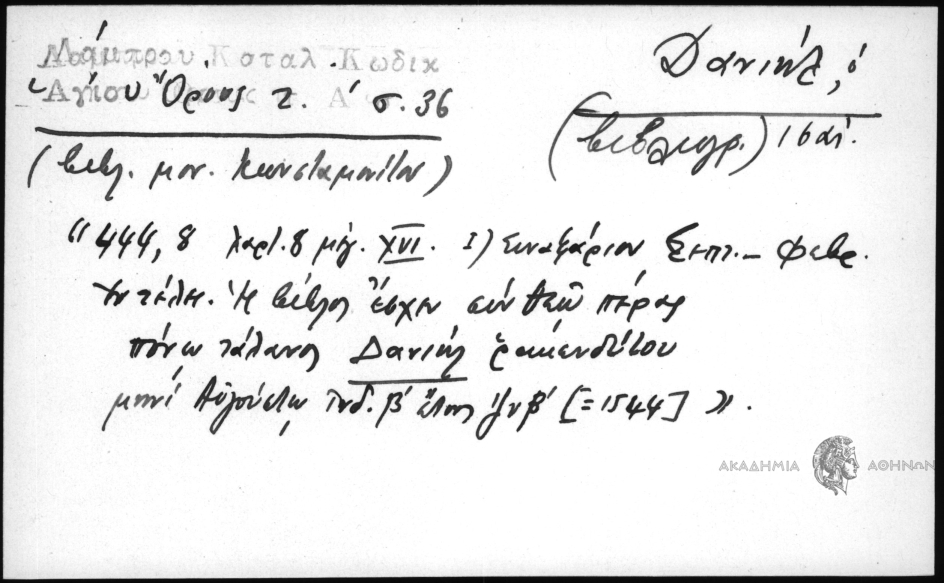 Λάμπρου Καταλ. Κωδίκ
Ἁγίου Ὄρους τ. Α' σ. 36
Δανιήλ, ὁ
(βιβλιογρ.) 16 αἰ.
(βιβλ. μον. Κωνσταμονίτου)
"444, 8 χαρτ. 8 μιγ. XVI. 1) Συναξάριον Σεπτ. – Φεβρ.
Ἐν τέλει. Ἡ βίβλος ἔσχεν σὺν Θεῷ πέρας
πόνῳ τάλανος Δανιὴλ ῥακενδύτου
μηνὶ Αὐγούστῳ Ἰνδ. β' ἔτους ζνβ' [=1544] ".
ΑΚΑΔΗΜΙΑ ΑΘΗΝΩΝ